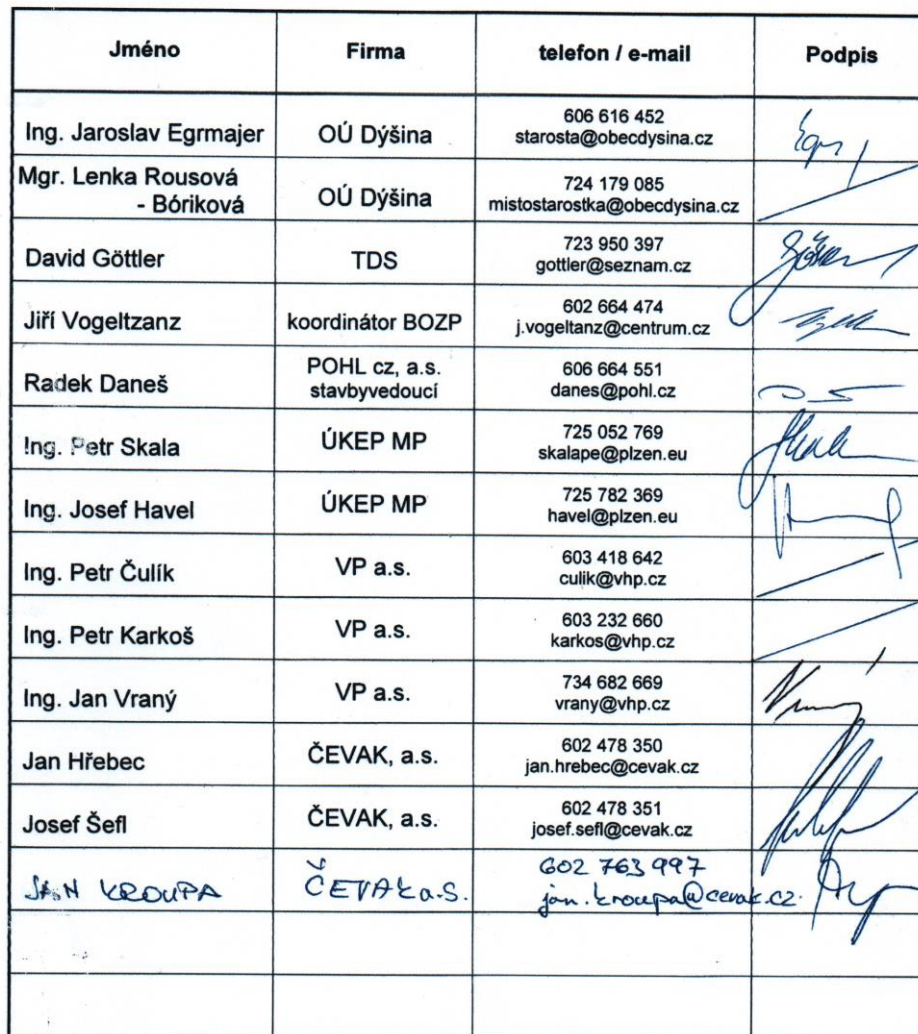 Jméno Firma telefon / e-mail Podpis
Ing. Jaroslav Egrmajer OÚ Dýšina 606 616 452
starosta@obecdysina.cz
Mgr. Lenka Rousová
- Bóriková OÚ Dýšina 724 179 085
mistostarostka@obecdysina.cz
David Göttler TDS 723 950 397
gottler@seznam.cz
Jiří Vogeltzanz koordinátor BOZP 602 664 474
j.vogeltanz@centrum.cz
Radek Daneš POHL cz, a.s.
stavbyvedoucí 606 664 551
danes@pohl.cz
Ing. Petr Skala ÚKEP MP 725 052 769
skalape@plzen.eu
Ing. Josef Havel ÚKEP MP 725 782 369
havel@plzen.eu
Ing. Petr Čulík VP a.s. 603 418 642
culik@vhp.cz
Ing. Petr Karkoš VP a.s. 603 232 660
karkos@vhp.cz
Ing. Jan Vraný VP a.s. 734 682 669
vrany@vhp.cz
Jan Hřebec ČEVAK, a.s. 602 478 350
jan.hrebec@cevak.cz
Josef Šefl ČEVAK, a.s. 602 478 351
josef.sefl@cevak.cz
JAN KROUPA ČEVAK a.s. 602 763 997
jan.kroupa@cevak.cz